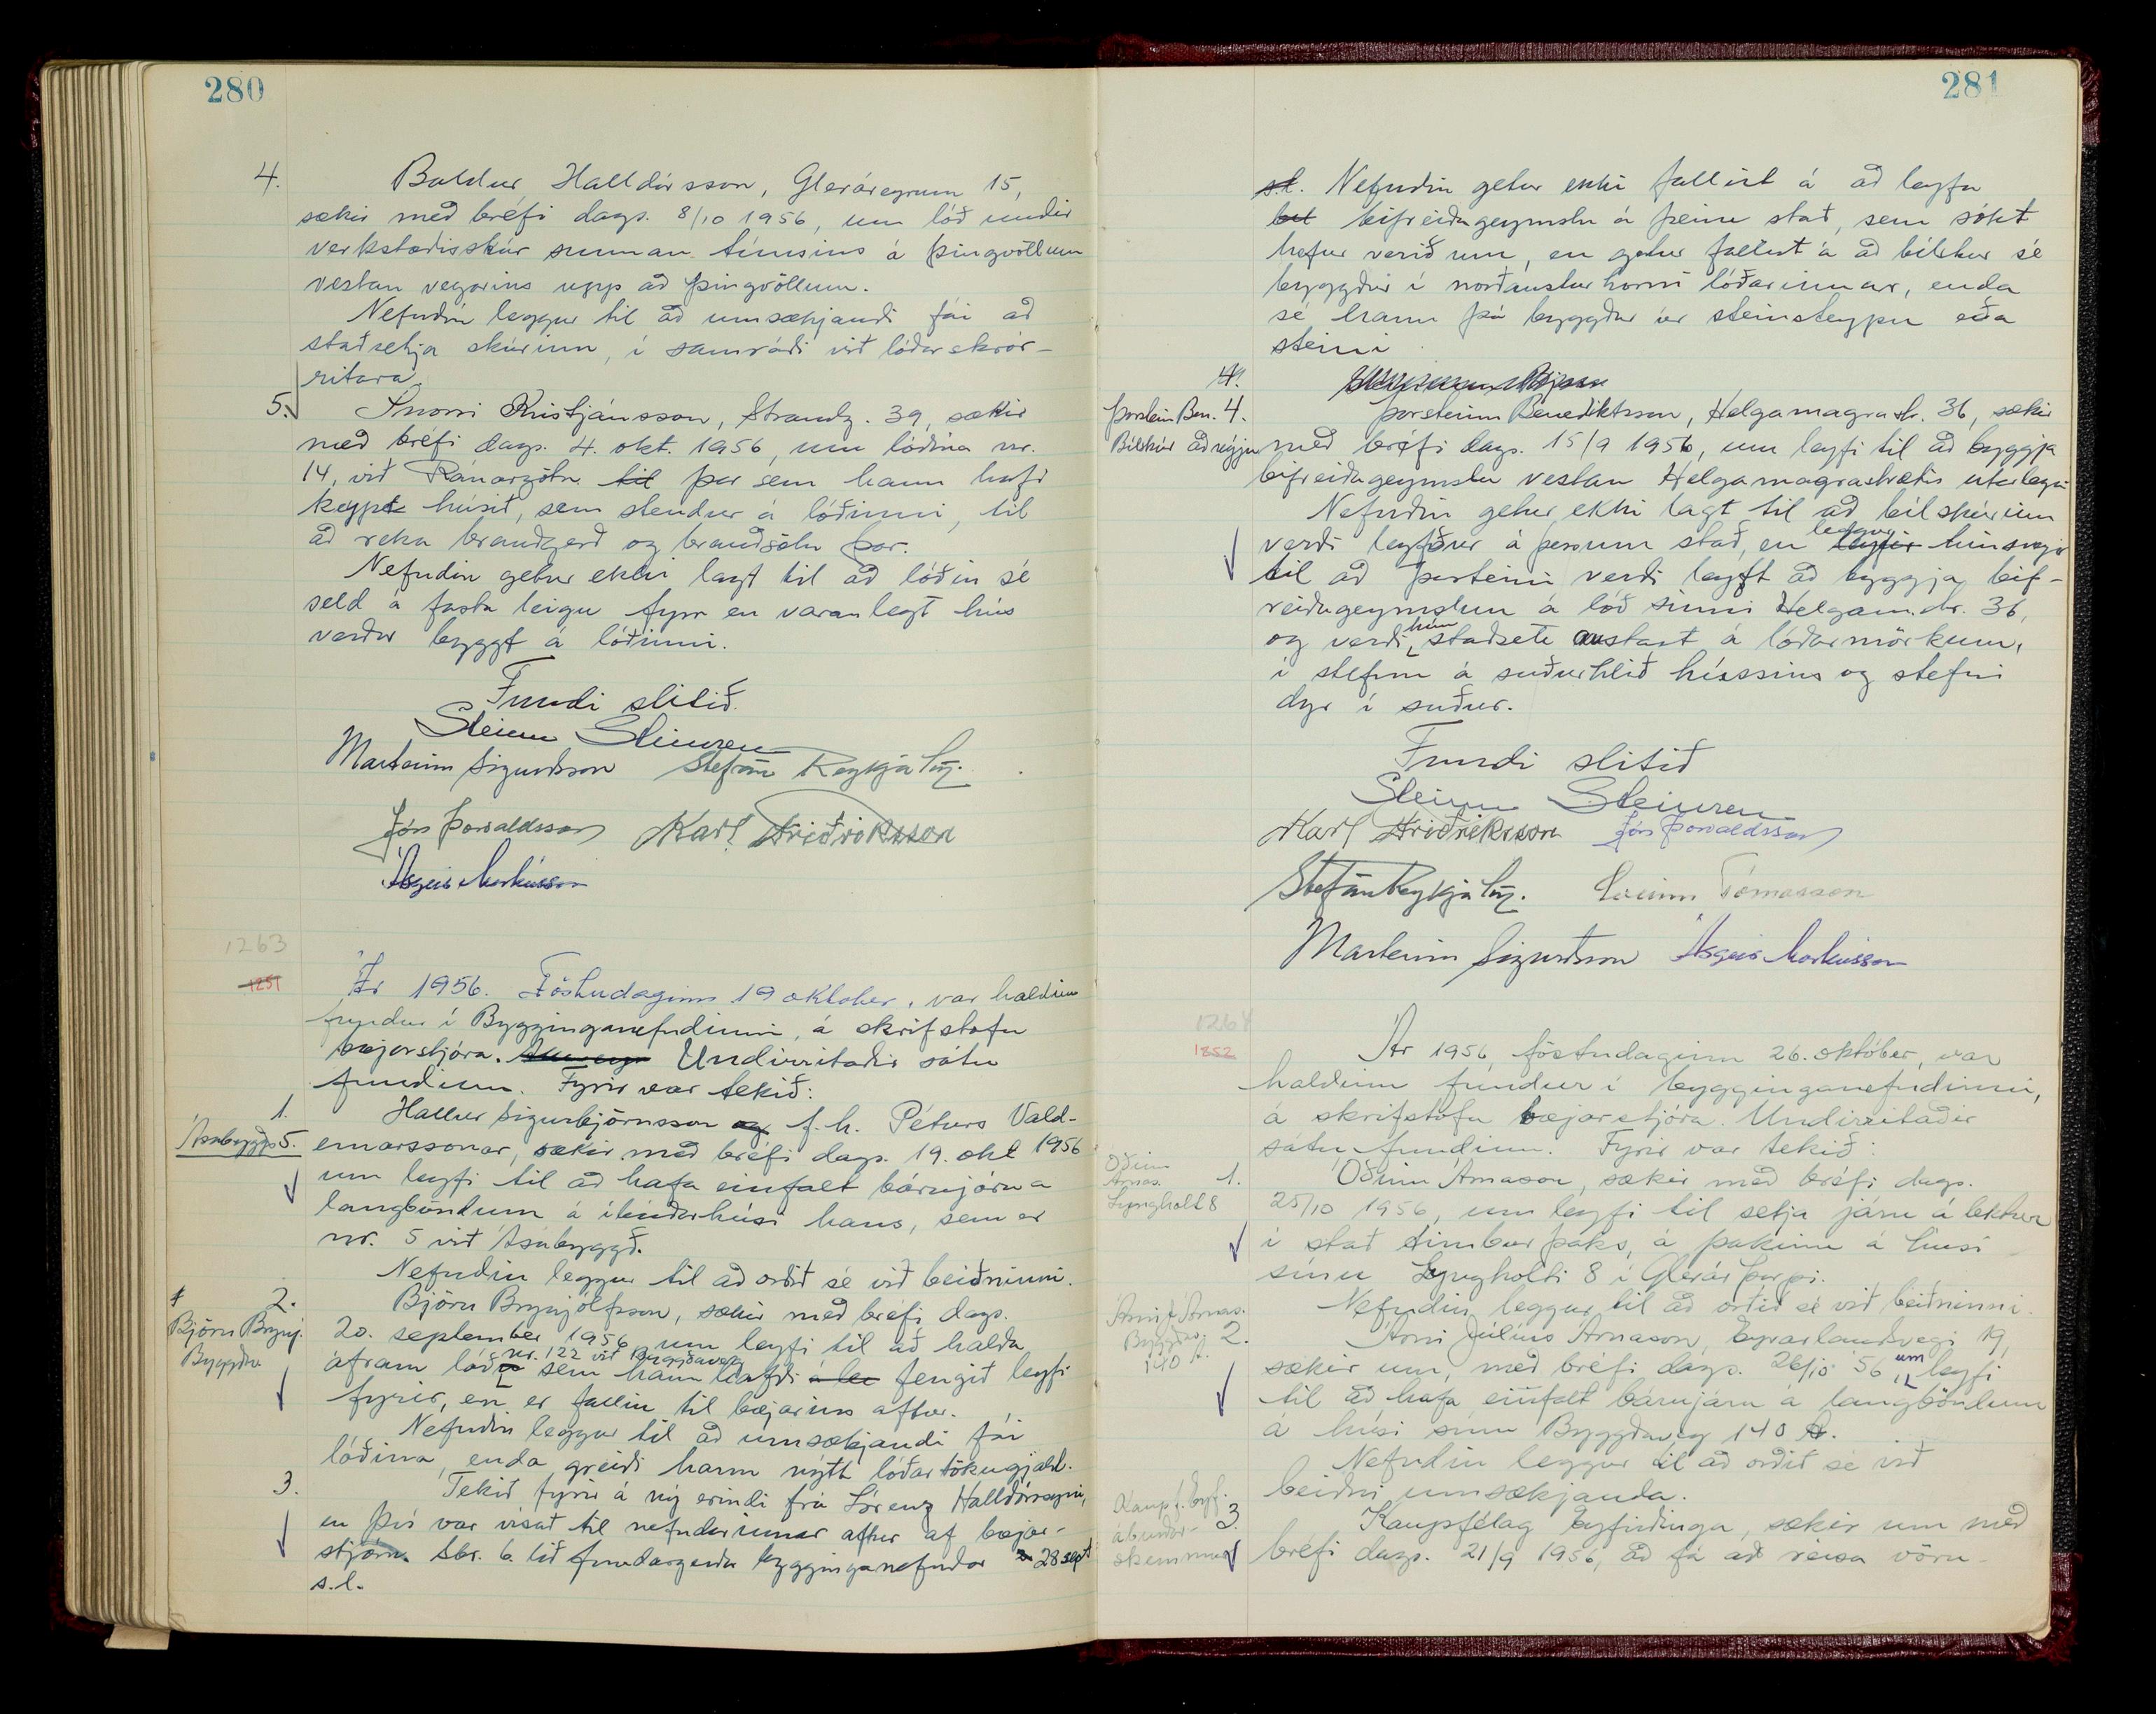 280
4. Baldur Halldórsson, Gleráreyrum 15,
sækir með bréfi dags. 8/10 1956, um lóð undir
verkstæðisskúr sunnan túnsins á þingvöllum
vestan vegarins upp að þingvöllum.
Nefndin leggur til að umsækjandi fái að
staðsetja skúrinn, í samráði við lóðarskrár-
ritara.
5. Snorri Kristjánsson, Strandg. 39, sækir
með bréfi dags. 4. okt. 1956, um lóðina nr.
14, við Ránargötu til þar sem hann hafi
keypt húsið, sem stendur á lóðinni, til
að reka brauðgerð og brauðsölu þar.
Nefndin getur ekki lagt til að lóðin sé
seld á fasta leigu fyrr en varanlegt hús
verður byggt á lóðinni.
Fundi slitið.
Steinn Steinsen
Marteinn Sigurðsson Stefán Reykjalín.
Jón Þorvaldsson Karl Friðriksson
Ásgeir Markússon
1263
1251
Ár 1956. Föstudaginn 19 október, var haldinn
fundur í Bygginganefndinni, á skrifstofu
bæjarstjóra. Undirritaðir sátu
fundinn. Fyrir var tekið:
1. Hallur Sigurbjörnsson og f.h. Péturs Vald-
Ásabyggð 5. emarssonar, sækir með bréfi dags. 19. okt 1956
um leyfi til að hafa einfalt bárujárn á
langböndum á íbúðarhúsi hans, sem er
nr. 5 við Ásabyggð.
Nefndin leggur til að orðið sé við beiðninni.
2. Björn Brynjólfsson, sækir með bréfi dags.
Björn Brynj. 20. september 1956 um leyfi til að halda
nr. 122 við Byggðaveg
Byggðav áfram lóð sem hann hafði fengið leyfi
fyrir, en er fallin til bæjarins aftur.
Nefndin leggur til að umsækjandi fái
lóðina, enda greiði hann nýtt lóðartökugjald.
3. Tekið fyrir á ný erindi frá Lórenz Halldórssyni,
en því var vísað til nefndarinnar aftur af bæjar-
stjórn. Sbr. 6. lið fundargerðar bygginganefndar 28 sept
s.l.
281
s.l. Nefndin getur ekki fallist á að leyfa
bifreiðageymslu á þeim stað, sem sótt
hefur verið um, en getur fallist á að bílskúr sé
byggður í norðausturhorni lóðarinnar, enda
sé hann þá byggður úr steinsteypu eða
steini
4.
Þorstein Ben. 4. Þorsteinn Benediktsson, Helgamagrastr. 36, sækir
Bílskúr að með bréfi dags. 15/9 1956, um leyfi til að byggja
bifreiðageymslu vestan Helgamagrastrætis
Nefndin getur ekki lagt til að bílskúrinn
leggur
verði leyfður á þessum stað, en leyfir hinsvegar
til að Þorsteini verði leyft að byggja bif-
reiðageymslun á lóð sinni Helgam.str. 36,
hún
og verði staðsett austast á lóðarmörkum,
í stefnu á suðurhlið hússins og stefni
dyr í suður.
Fundi slitið
Steinn Steinsen
Karl Friðriksson Jón Þorvaldsson
Stefán Reykjalín. Sveinn Tómasson
Marteinn Sigurðsson Ásgeir Markússon
1264
1252
Ár 1956, föstudaginn 26. október, var
haldinn fundur í bygginganefndinni,
á skrifstofu bæjarstjóra. Undirritaðir
sátu fundinn. Fyrir var tekið:
Óðinn
Árnas. 1. Óðinn Árnason, sækir með bréfi dags.
Lyngholt 8 25/10 1956, um leyfi til setja járn á lektur
í stað timburþaks, á þakinu á húsi
sínu Lyngholti 8 í Glerárþorpi.
Nefndin leggur til að orðið sé við beiðninni.
Árni J. Árnas.
Byggðav. 2. Árni Júlíus Árnason, Eyrarlandsvegi 19,
140 A. sækir um, með bréfi dags. 26/10 '56, um leyfi
til að hafa einfalt bárujárn á langböndum
á húsi sínu Byggðaveg 140 A.
Nefndin leggur til að orðið sé við
beiðni umsækjanda.
Kaupf. Eyf.
áburðar- 3. Kaupfélag Eyfirðinga, sækir um með
skemma bréfi dags. 21/9 1956, að fá að reisa vöru-